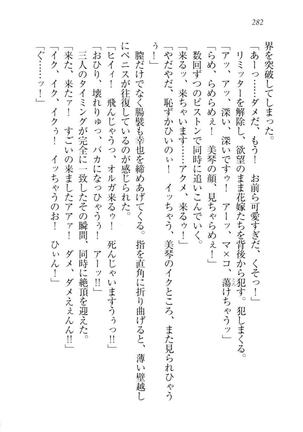 282
界を突破してしまった。
「あーっ……ダメだ、もう！　お前ら可愛すぎだ、くそっ！」
リミッターを解除し、欲望のまま花嫁たちを背後から犯す。犯しまくる。
「アッ、アッ、深い、深いですぅ！　アーッ、マ×コ、蕩けちゃうッ」
「らめらめらめぇ！　美琴の顔、見ちゃらめぇ！」
数回ずつのピストンで同時に追いこんでいく。
「来るッ、来ちゃう……アクメ、来るゥ！」
「やだやだ、恥ずかひぃのぉ！　イッちゃう、美琴のイクところ、また見られひゃう
のぉ！」
膣だけでなく腸襞も幸也を締めあげてくる。指を直角に折り曲げると、薄い壁越し
にペニスが往復しているのが感じられた。
「ヒイィ！　飛んじゃうっ、オルガ来るゥ！　死んじゃいますうっっ!!」
「おひり、壊れりゅっ、バカになっひゃうぅ！　アーッ!!」
三人のタイミングが完全に一致したその瞬間、同時に絶頂を迎えた。
「来た、来たァー！　すごいの来ましたアァァ！　ダメ、ダメええんん!!」
「イク、イク、イクぅ！　イッちゃうのお！　ひぃん！」
「ぐ……ッ！」